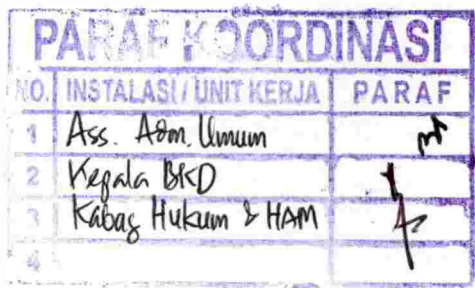 PARAF KOORDINASI
NO. INSTALASI / UNIT KERJA PARAF
1 Ass. Adm. Umum
2 Kepala BKD
3 Kabag Hukum & HAM
4